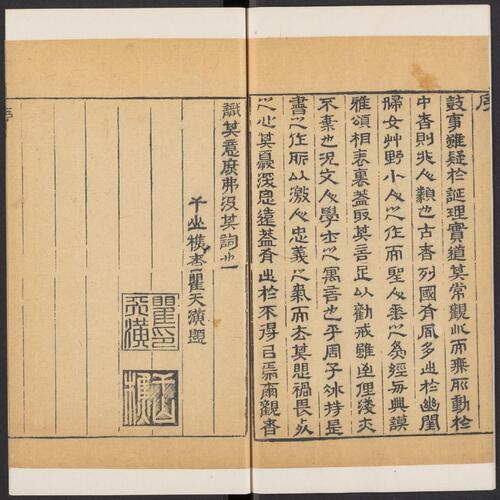 序
鼓事雖疑於誕理實道其常觀此而無所動於
中者則非人類也古者列國有風多出於幽閨
婦女艸野小人之作而聖人垂之為經与典謨
雅頌相表裏蓋取其言足以勸戒雖俚淺夫
不棄也況文人學士之寓言也乎周子冰持是
書之作所以激人忠義之氣而去其禍畏
之心其憂深思遠蓋有出於不得已焉爾觀者
識其意庶弗沒其詞也
千山樵者瞿天潢題
瞿印天潢